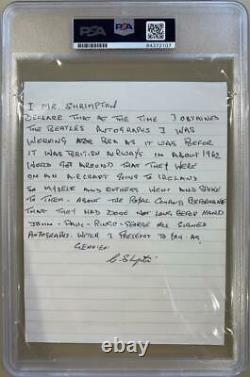 PSA
PSA
84372107
I MR. SHRIMPTON
DECLARE THAT AT THE TIME I OBTAINED
THE BEATLES AUTOGRAPHS I WAS
WORKING FOR BEA AS IT WAS BEFOR
IT WAS BRITISH AIRWAYS IN ABOUT 1962
WORD GOT AROUND THAT THEY WERE
ON AN AIRCRAFT GOING TO IRELAND
SO MYSELF AND OTHERS WENT AND SPOKE
TO THEM - ABOUT THE ROYAL COMAND PERFORMANCE
THAT THEY HAD DONE NOT LONG BEFOR HAND
JOHN - PAUL - RINGO - GEORGE ALL SIGNED
AUTOGRAPHS. WHICH I PRESENT TO YOU AS